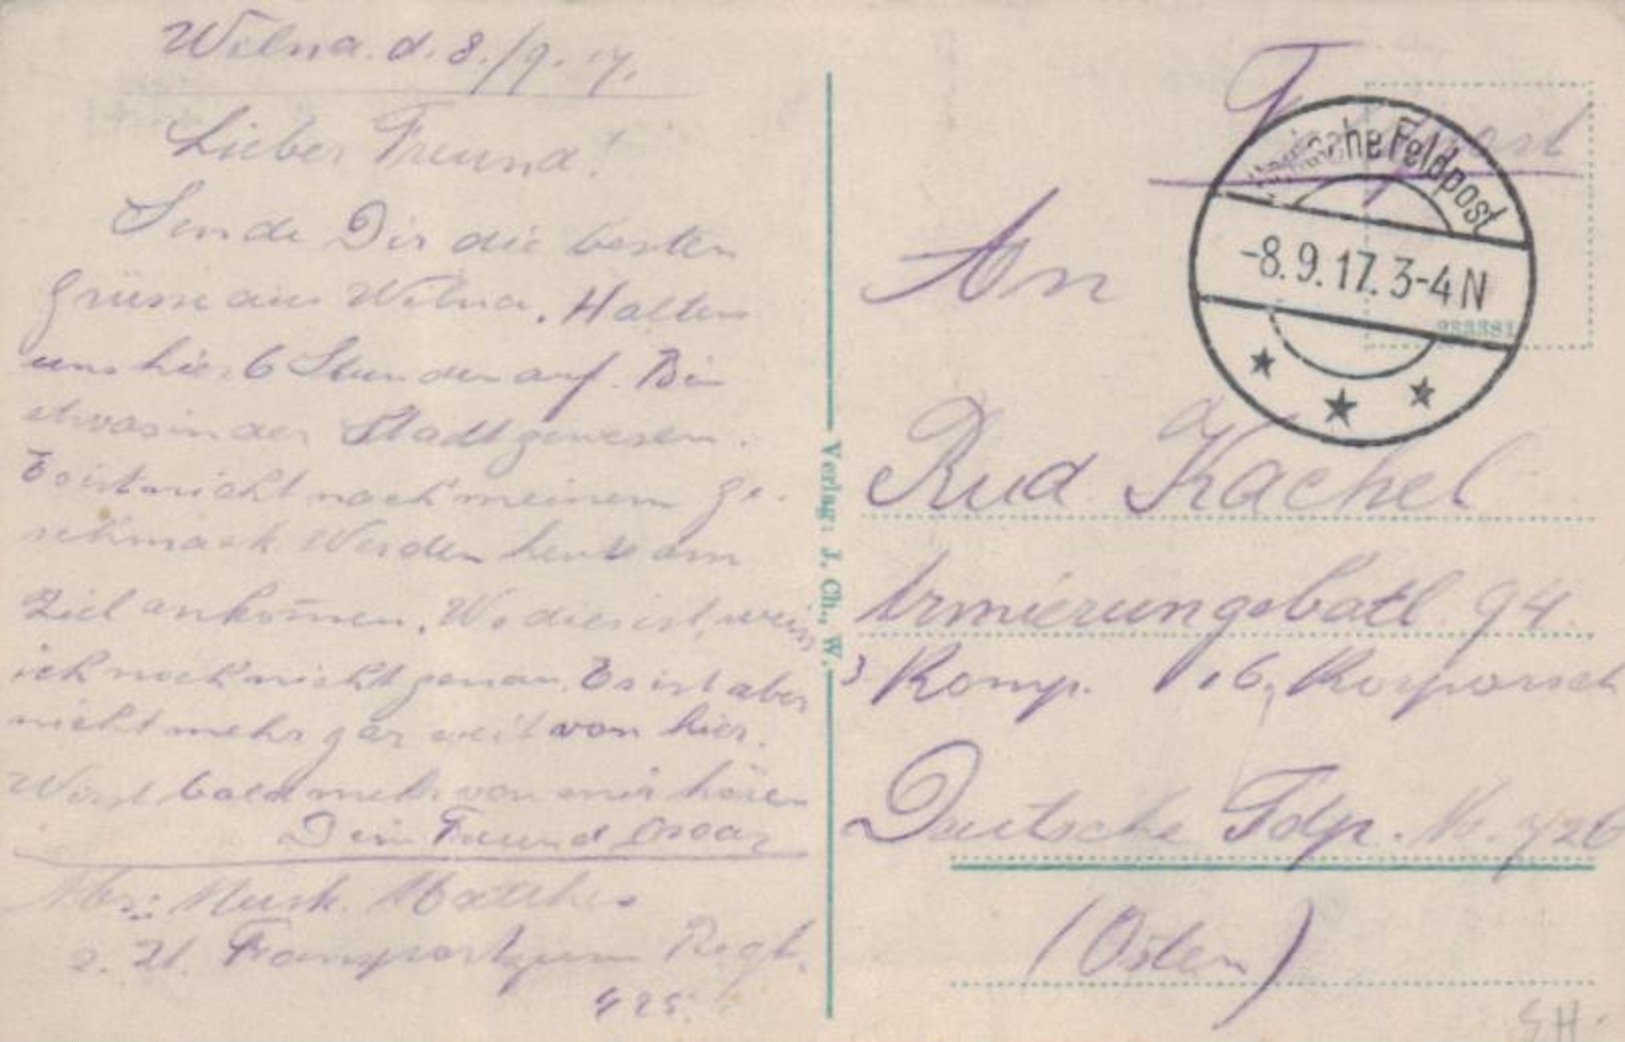 Wilna. d. 8./9. 17.
Lieber Freund!
Sende Dir die besten
Grüsse aus Wilna. Halten
uns hier 6 Stunden auf. Bin
etwas in der Stadt gewesen.
Es ist nicht nach meinem Ge-
schmack Werden heute am
Ziel ankom̄en. Wo dies ist, weiss
ich noch nicht genau. Es ist aber
nicht mehr gar weit von hier.
Wirst bald mehr von mir hören
Dein Freund Oscar
Abs: Musk. Matthes
z. Zt. Transport zum Regt.
425.
Verlag: J. Ch., W.
F. post
ische Feldpost
-8.9.17. 3-4 N
233381
An
Rud. Kachel
Armierungsbatl. 94.
3 Komp. 16. Korporsch
Deutsche Fdp. No. 726
(Osten)
SH.